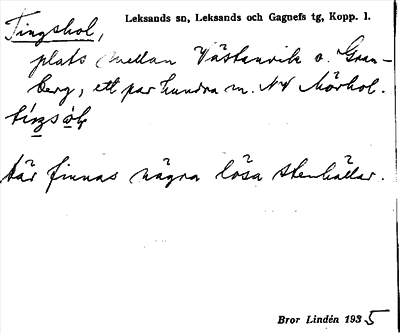 Tingshol,
Leksands sn, Leksands och Gagnefs tg, Kopp. l.
plats mellan Västanvik o. Gran-
berg, ett par hundra m. NV Mörhol.
där finnas några lösa stenhällar.
Bror Lindén 1935